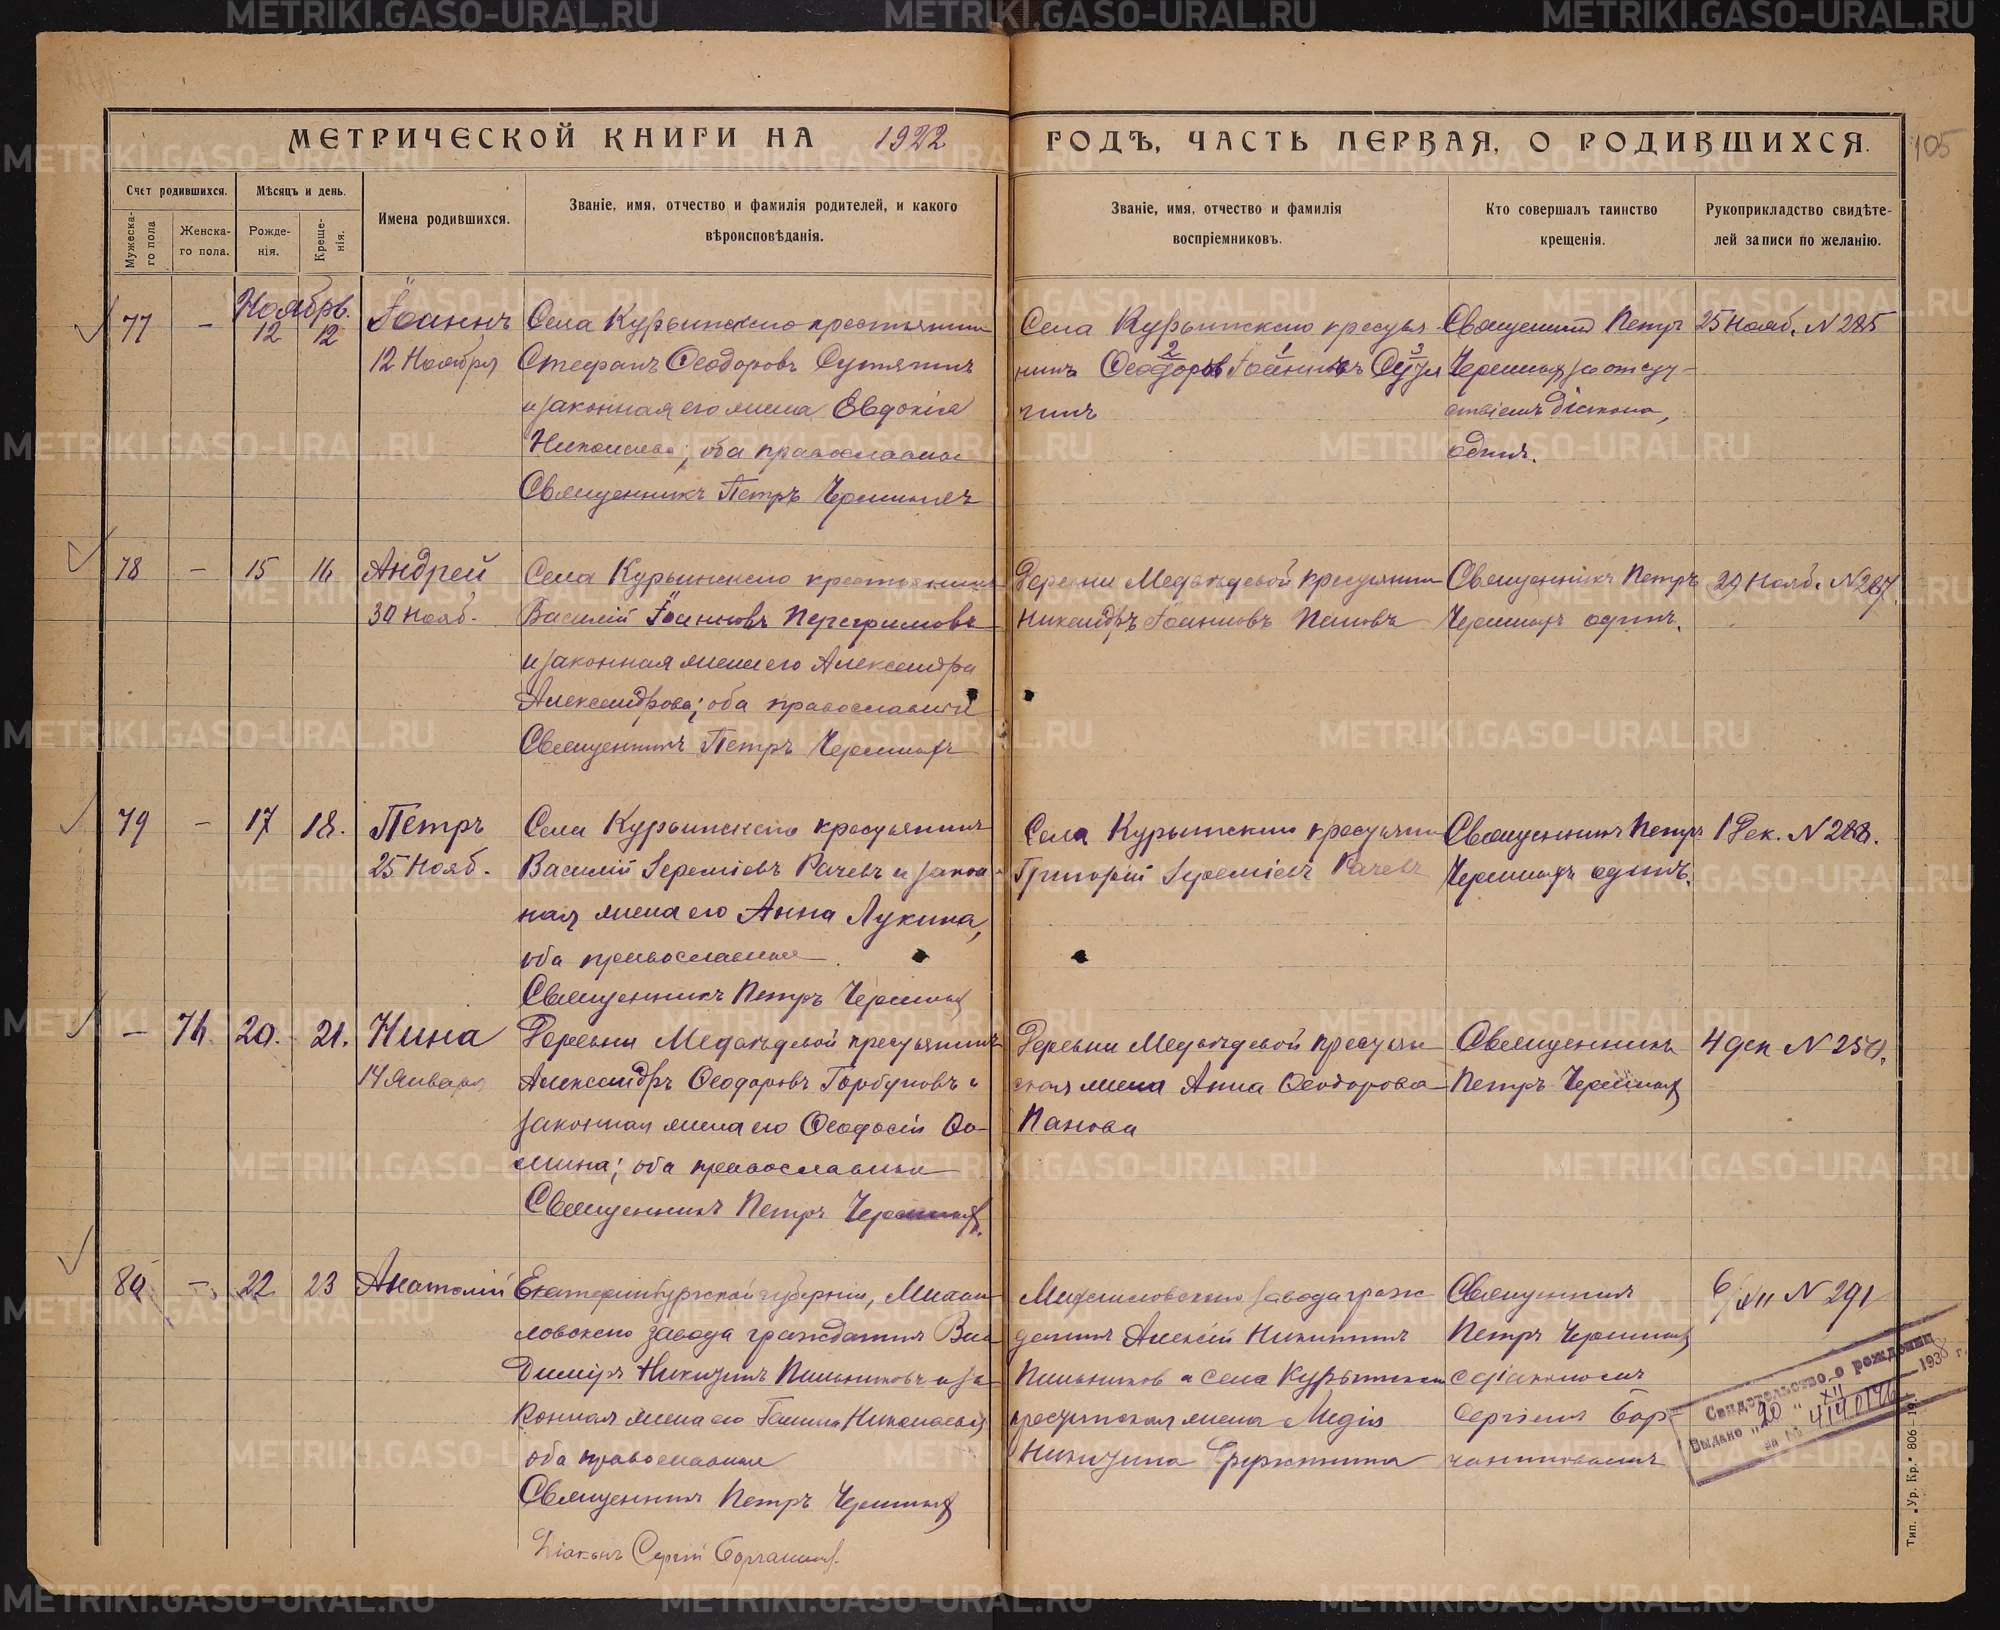 МЕТРИЧЕСКОЙ КНИГИ НА 1922 ГОДЪ, ЧАСТЬ ПЕРВАЯ, О РОДИВШИХСЯ.
105
Счет родившихся.
Мужеска-
го пола
Женска-
го пола.
Мѣсяцъ и день.
Рожде-
нія.
Креще-
нія.
Имена родившихся.
Званіе, имя, отчество и фамилія родителей, и какого
вѣроисповѣданія.
Званіе, имя, отчество и фамилія
воспріемниковъ.
Кто совершалъ таинство
крещенія.
Рукоприкладство свидѣте-
лей записи по желанію.
Ноябрь.
77 - 12 12
Іоаннъ
12 Ноября
Села Курьинскаго крестьянин
Стефанъ Ѳеодоровъ
и законная его жена Евдокія
Николаева; оба православные
Священникъ Петръ
Села Курьинскаго кресть
нинъ Ѳеодоровъ 2 Іоанновъ 1 3
гинъ
Священник Петр
за отсут-
ствіемъ діакона,
один.
25 Нояб. N 285
78 - 15 16
Андрей
30 Нояб.
Села Курьинскаго крестьянин
Василій Іоанновъ Перегримовъ
и законная жена его Александра
Александрова; оба православные
Священникъ Петръ
Деревни Медвѣдевой крестьянин
Никандръ Іоанновъ Пановъ
Священникъ Петръ
один.
29 Нояб. N 287.
79 - 17 18.
Петръ
25 Нояб.
Села Курьинскаго крестьянин
Василій Іереміевъ Рачевъ и закон-
ная жена его Анна Лукина,
оба православные.
Священникъ Петръ
Села Курьинскаго крестьянин
Григорій Іереміевъ Рачевъ
Священник Петръ
одинъ.
1 Дек. N 288.
- 76. 20. 21.
Нина
14 Января
Деревни Медвѣдевой крестьянинъ
Александръ Ѳеодоровъ Горбуновъ и
законная жена его Ѳеодосія Ѳо-
мина; оба православные
Священникъ Петръ
Деревни Медвѣдевой крестьян
ская жена Анна Ѳеодорова
Панова
Священникъ
Петръ
4 дек N 250.
80 - 22 23
Анатолій
Екатеринбургской губерніи,
ловскаго завода гражданин Вла
диміръ Никитинъ Пильниковъ и за
конная жена его Николаева
оба православные
Священник Петръ
Діаконъ Сергій
завода граж
данин Алексій Никитин
Пильников и села Курьинскаго
крестьянская жена
Никитина
Священник
Петръ
с діакономъ
Сергіемъ
6/XII N 291
Свидетельство о рождении
Выдано „20“ XII 1938 г.
за №
Тип. „Ур. Кр.“ 806-19
METRIKI.GASO-URAL.RU